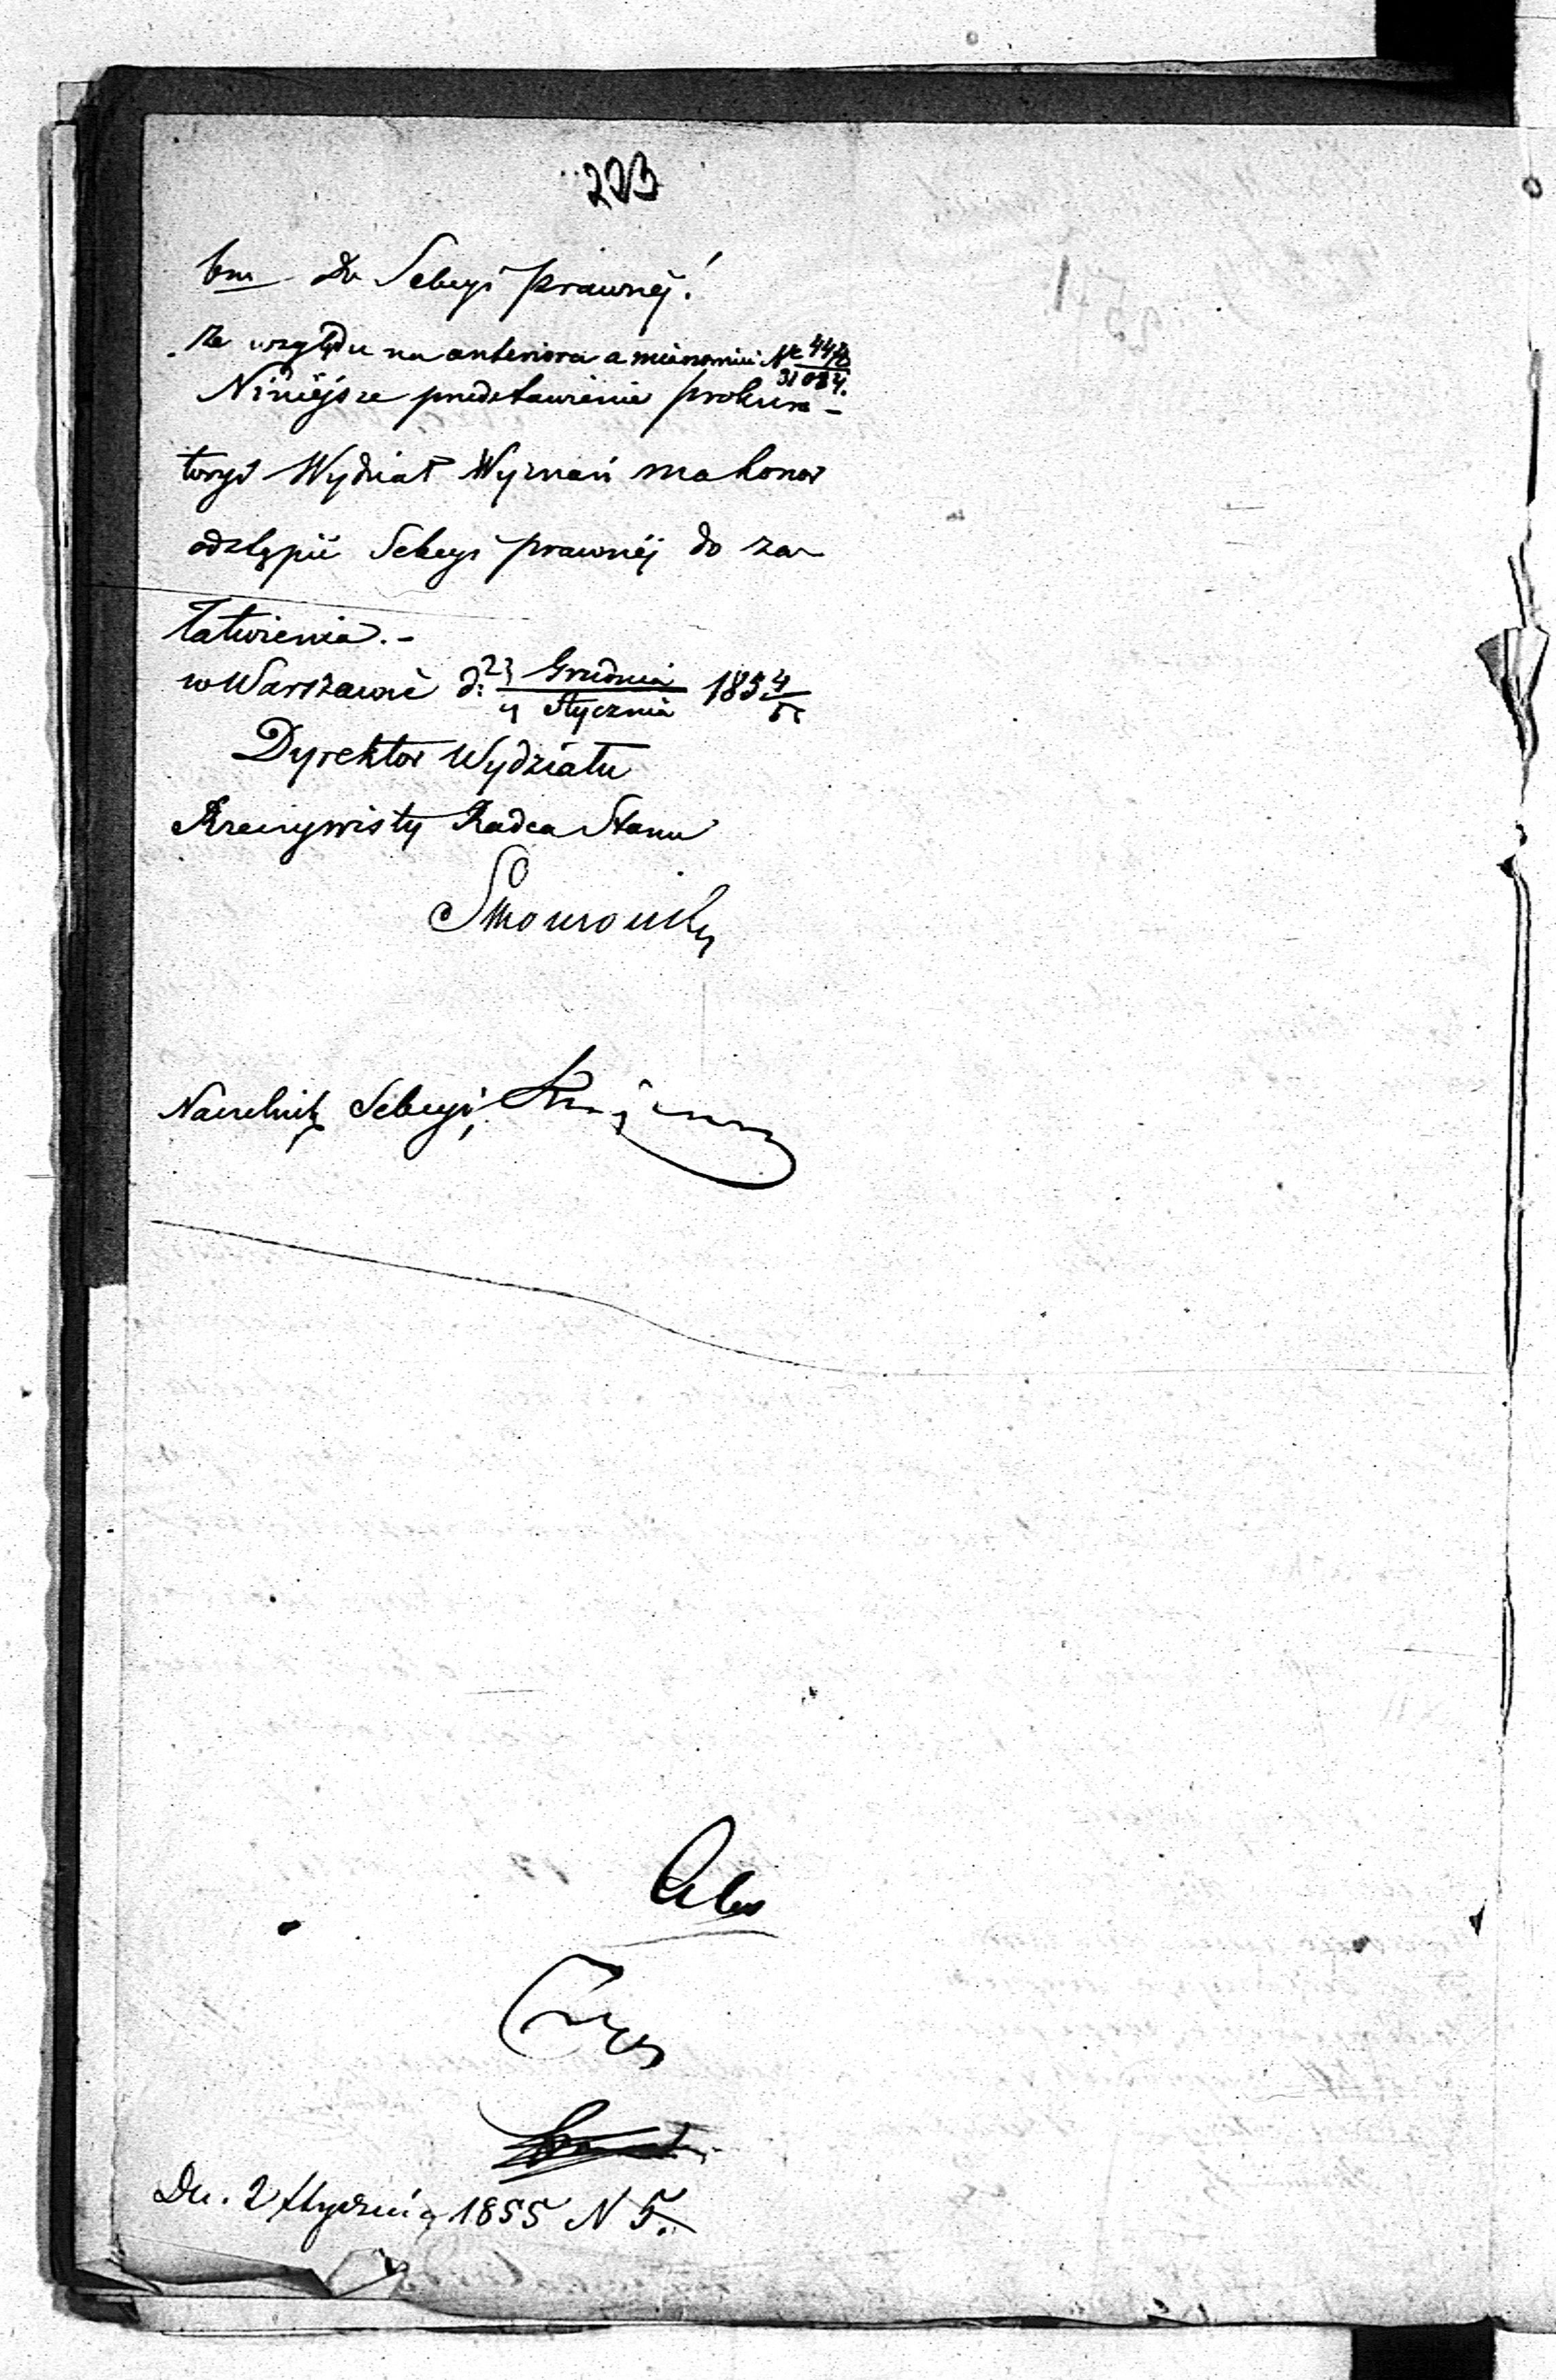 223
bm do Sekcyi prawnéj!
Ze względu na anteriora a mianowicie Nr 4476/31084.
Niniejsze przedstawienie prokura-
toryi Wydział Wyznań ma honor
odstąpić Sekcyi prawnéj do za-
łatwienia.-
w Warszawie d: 23 Grudnia/4 Stycznia 1854/5
Dyrektor Wydziału
Rzeczywisty Radca Stanu
Naczelnik Sekcyi,
Dn. 2 Stycznia 1855 N 5.